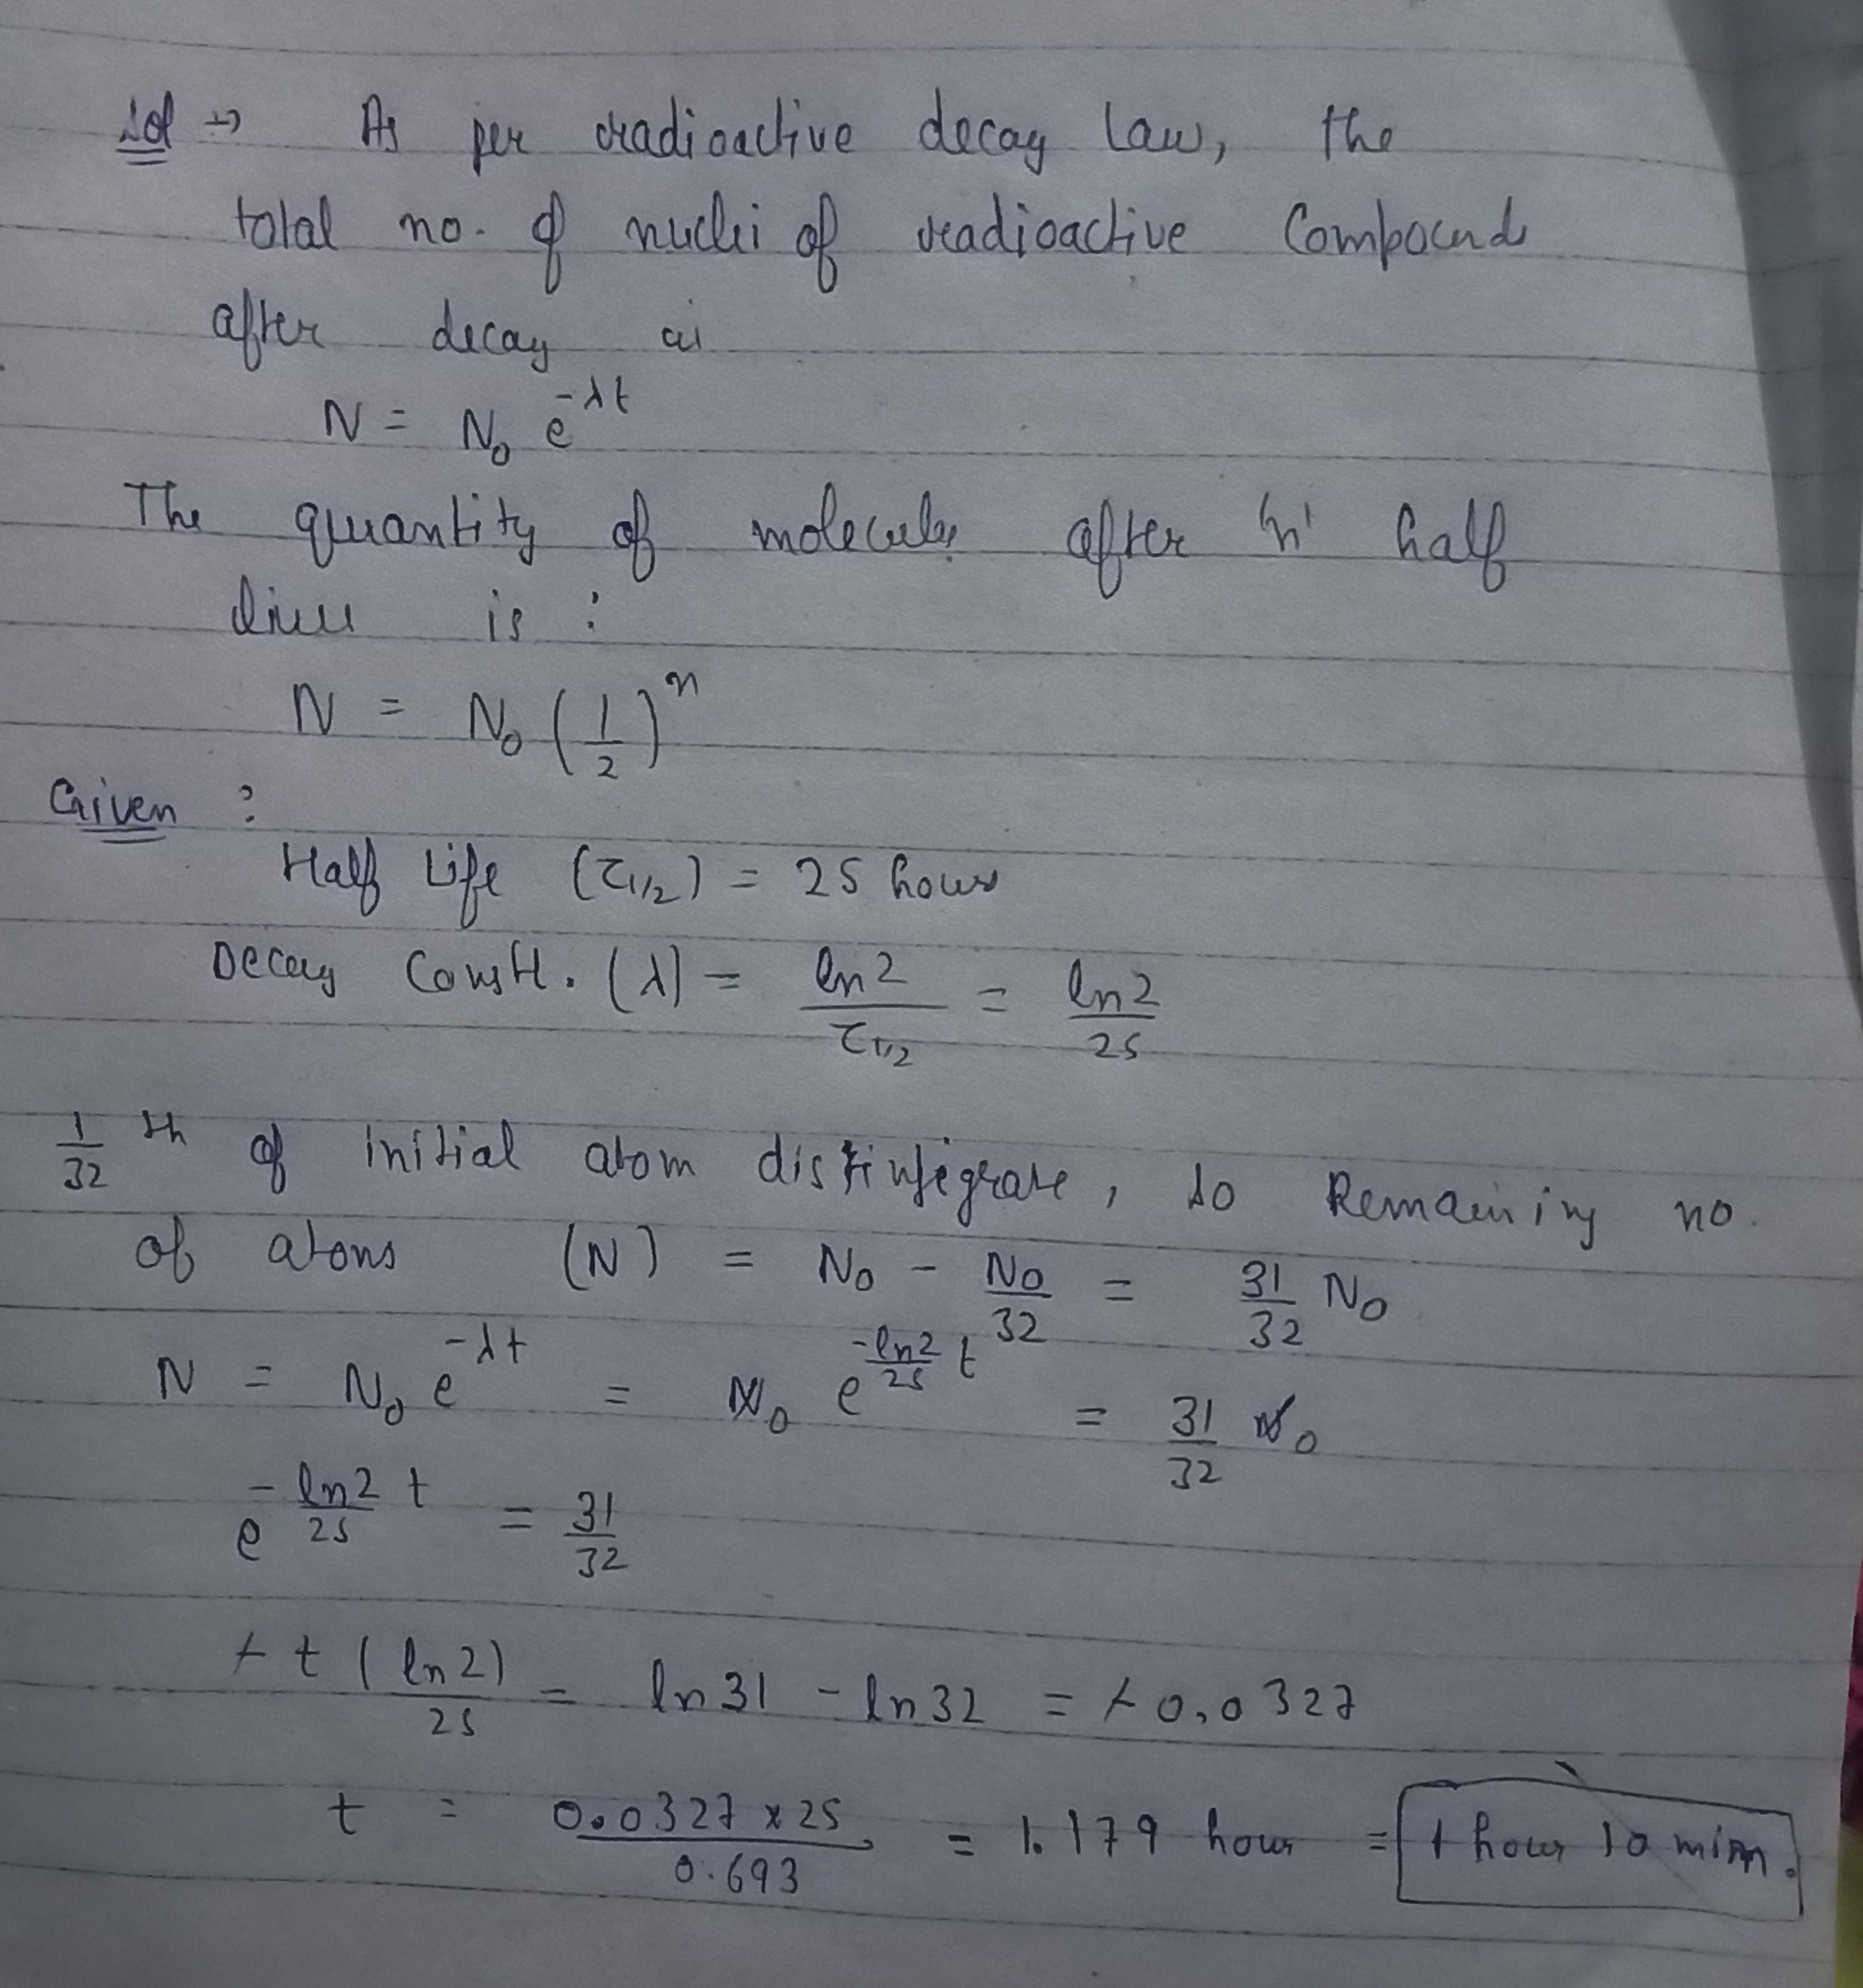 Sol → As per radioactive decay law, the
total no. of nuclei of radioactive Compound
after decay is
N = N₀ e^{-λt}
The quantity of molecules after 'n' half
lives is :
N = N₀ (1/2)^n
Given :
Half Life (τ_{1/2}) = 25 hours
Decay Constt. (λ) = ln2/τ_{1/2} = ln2/25
1/32 th of initial atom disintegrate, so Remaining no.
of atoms (N) = N₀ - N₀/32 = 31/32 N₀
N = N₀ e^{-λt} = N₀ e^{-ln2/25 t} = 31/32 N₀
e^{-ln2/25 t} = 31/32
- t (ln2)/25 = ln31 - ln32 = - 0.0327
t = 0.0327 x 25/0.693 = 1.179 hour = 1 hour 10 min.